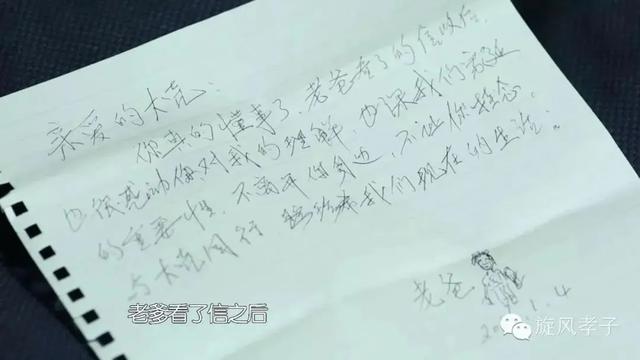 亲爱的大克:
你真的懂事了,老爸看了的信以后,
也很感动你对我的理解,也深我们家庭
的重要性,不离开你身边,不让你挂念。
与大克同行 我们现在的生活:
老爸
1.4
老爹看了信之后
旋风孝子